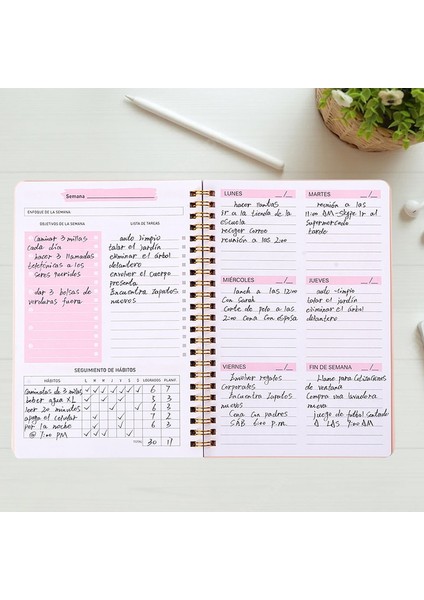 Semana
ENFOQUE DE LA SEMANA
OBJETIVOS DE LA SEMANA
Caminar 3 millas
cada día
hacer 3 llamadas
telefónicas a los
seres queridos
dar 3 bolsas de
verduras fuera
LISTA DE TAREAS
auto limpio
talar el jardín
eliminar el árbol
delantero
envolver el cuerpo
presenta
Encuentra Zapatos
nuevos
SEGUIMIENTO DE HÁBITOS
HÁBITOS
LOGRADOS
PLAN
caminatas de 3 millas 6 7
beber agua XL 3 3
leer 20 minutos 6 3
apaga el celular 7 2
por la noche 6 3
@ 9:00 PM
TOTAL 30
LUNES __/__
hacer
Ir a la tienda de la
escuela
recoger correo
reunión a las 2:00
MARTES __/__
reunión a las
11:00 AM - Skype Ir al
Supermercado
tarde
MIÉRCOLES __/__
lunch a las 12:00
Con Sarah
Corte de pelo a las
2:00 Cena Con esposa
JUEVES __/__
auto -limpio
talar el jardín
eliminar el árbol
delantero
VIERNES __/__
Envolver regalos
Corporates
Encuentra Zapatos
nuevos
Cena con padres
SAB 6:00 p.m.
FIN DE SEMANA __/__
Llame para cotizaciones
de ventana
Compra una lavadora
nueva
juego de futbol sentado
A LAS 9:00 AM